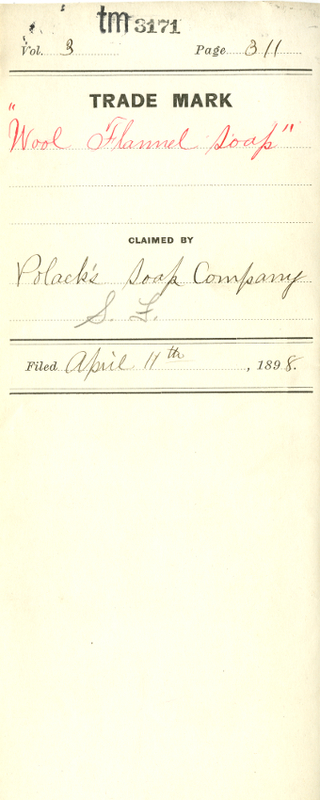 tm 3171
Vol. 3 Page 311
TRADE MARK
"Wool Flannel Soap"
CLAIMED BY
Polack's Soap Company
S. F.
Filed April 11th, 1898.